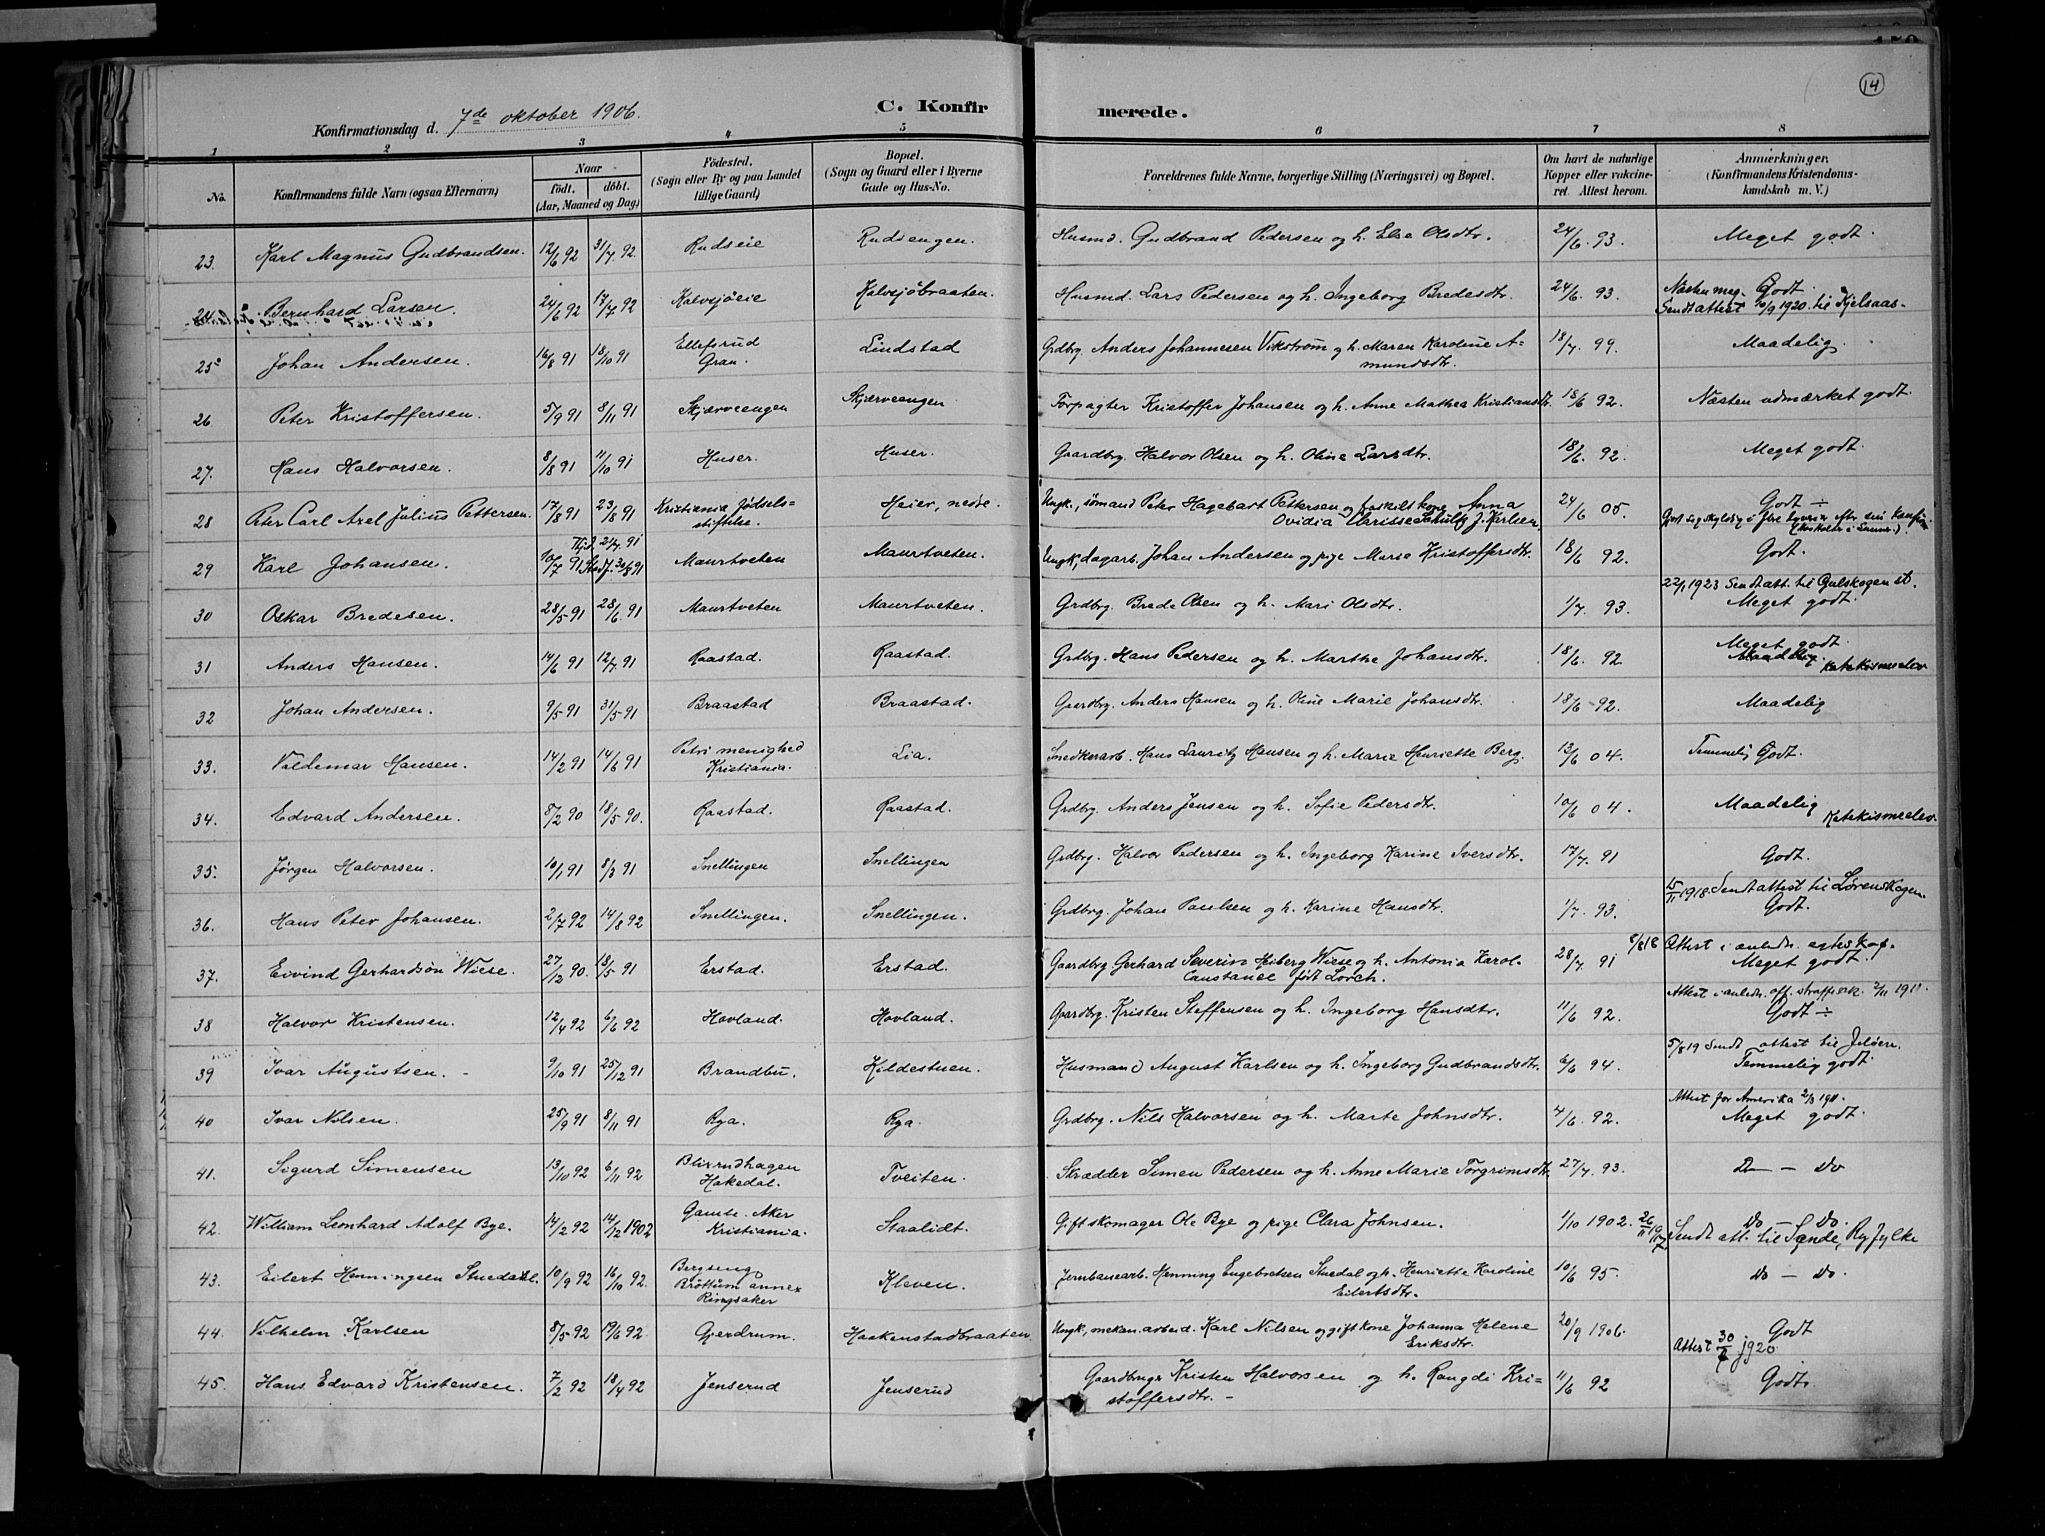 14
C. Konfirmerede.
Konfirmationsdag d. 7de oktober 1906.
1 2 3 4 5 6 7 8
No. Konfirmandens fulde Navn (ogsaa Efternavn) Naar født. døbt. (Aar, Maaned og Dag) Fødested. (Sogn eller By og paa Landet tillige Gaard) Bopæl. (Sogn og Gaard eller i Byerne Gade og Hus-No. Forældrenes fulde Navne, borgerlige Stilling (Næringsvei) og Bopæl. Om havt de naturlige Kopper eller vakcineret. Attest herom. Anmærkninger. (Konfirmandens Kristendomskundskab m. V.)
23. Karl Magnus Gudbrandsen. 12/6 92 31/7 92. Rudseie Rudsengen. Husmd. Gudbrand Pedersen og h. Else Olsdtr. 24/6. 93. Meget godt.
24 Bernhard Larsen. 24/6 92 17/7 92 Kalvsjøeie Kalvsjøbraaten. Husmd. Lars Pedersen og h. Ingeborg Bredesdtr. 24/6. 93. Næsten meg. Godt.
Sendt attest 20/9 1920. til Kjelsaas-
25 Johan Andersen. 16/8 91 18/10 91 Ellefsrud Gran. Lindstad Grdbrg. Anders Johannesen Vikstrøm og h. Maren Karoline Amundsdtr. 18/7. 99. Maadelig
26 Peter Kristoffersen. 5/9 91 8/11 91 Skjærveengen Skjærveengen Forpagter Kristoffer Johansen og h. Anne Mathea Kristiansdtr. 18/6 92. Næsten udmærket godt.
27. Hans Halvorsen. 8/8 91 11/10 91 Huser. Huser. Gaardbrg. Halvor Olsen og h. Oline Larsdtr. 18/6. 92. Meget godt.
28 Peter Carl Axel Julius Pettersen. 17/8 91 23/8 91 Kristiania Fødselsstiftelse. Heier, nedre. Ungk., sømand Peter Hagebart Pettersen og fraskilt kone Anna Ovidia Clarisse Schultz f. Karlsen. 24/6 05. Godt ÷
29 Karl Johansen. 10/7 91 Hjd. 21/7. 91 Stadf. 30/8 91 Maurtveten Maurtveten. Ungk, dagarb. Johan Andersen og pige Marie Kristoffersdtr. 18/6 92. Godt.
22/1 1923 Sendt att. til Gulskogen st.
30 Oskar Bredesen. 28/5 91 28/6. 91 Maurtveten Maurtveten. Grdbrg. Brede Olsen og h. Mari Olsdtr. 1/7. 93. Meget godt.
31 Anders Hansen. 14/6 91 12/7. 91 Raastad. Raastad. Grdbrg. Hans Pedersen og h. Marthe Johansdtr. 18/6. 92. Meget godt.
Maadelig Katekismeelev
32 Johan Andersen. 9/5 91 31/5 91 Braastad Braastad. Gaardbrg. Anders Hansen og h. Oline Marie Johansdtr. 18/6 92. Maadelig
33. Valdemar Hansen. 14/2 91 14/6 91 Petri menighed Kristiania. Lia. Snedkerarb. Hans Lauritz Hansen og h. Marie Henriette Berg. 13/6 04. Temmelig Godt.
34. Edvard Andersen. 8/2 90 18/5 90. Raastad. Raastad. Grdbrg. Anders Jensen og h. Sofie Pedersdtr. 10/6 04. Maadelig Katekismeelev.
35. Jørgen Halvorsen. 10/1 91 8/3 91 Snellingen Snellingen Grdbrg. Halvor Pedersen og h. Ingeborg Karine Iversdtr. 17/7. 91 Godt.
15/11 1918 Sendt attest til Lørenskogen.
36. Hans Peter Johansen. 2/7 92 14/8 92 Snellingen. Snellingen. Grdbrg. Johan Paulsen og h. Karine Hansdtr. 1/7. 93. Godt.
8/8 18 Attest i anledn. egteskap.
37. Eivind Gerhardsøn Wiese. 27/12 90. 18/5 91 Erstad. Erstad. Gaardbrg Gerhard Severin Heiberg Wiese og h. Antonia Karol. Constance født Lorch. 28/7 91 Meget godt.
Attest i anledn. off. straffesak. 2/11 1911.
38 Halvor Kristensen. 12/4 92 6/6 92 Hovland. Hovland. Gaardbrg. Kristen Steffensen og h. Ingeborg Hansdtr. 11/6 92. Godt ÷
5/8 19 Sendt attest til Jeløen.
39 Ivar Augustsen. - 9/10 91 25/12 91 Brandbu. Kildestuen. Husmand August Karlsen og h. Ingeborg Gudbrandsdtr. 6/6 94. Temmelig godt.
Attest for Amerika 2/3 1911.
40 Ivar Nilsen. 25/9 91 8/11 91 Rya. Rya. Grdbrg. Nils Halvorsen og h. Marte Johnsdtr. 4/6. 92. Meget godt.
41. Sigurd Simensen 13/10 92 6/11 92 Blixrudhagen Hakedal. Tveiten. Skrædder Simen Pedersen og h. Anne Marie Torgrimsdtr. 27/7. 93. Do - Do
42. William Leonhard Adolf Bye. 14/2 92 14/2 1902 Gamle Aker Kristiania. Staalidt. Gift skomager Ole Bye og pige Clara Johnsen. 1/10 1902. Do - Do.
26/11 1917 Sendt att. til Sande, Ryfylke
43. Eilert Henningsen Stuedal. 10/9 92 16/10 92. Bergseng Brøttum annex Ringsaker Kleven. Jernbanearb. Henning Engebretsen Stuedal og h. Henriette Karoline Eilertsdtr. 10/6 95. Do - Do.
44. Vilhelm Karlsen 8/5 92 19/6 92. Gjerdrum. Haakenstadbraaten. Ungk, mekan. arbeid. Karl Nilsen og gift kone Johanna Helene Eriksdtr. 20/9 1906. Godt
Attest 30/8 1920.
45. Hans Edvard Kristensen. 7/2 92 18/4 92 Jenserud Jenserud Gaardbruger Kristen Halvorsen og h. Rangdi Kristoffersdtr. - 11/6 92 Godt.